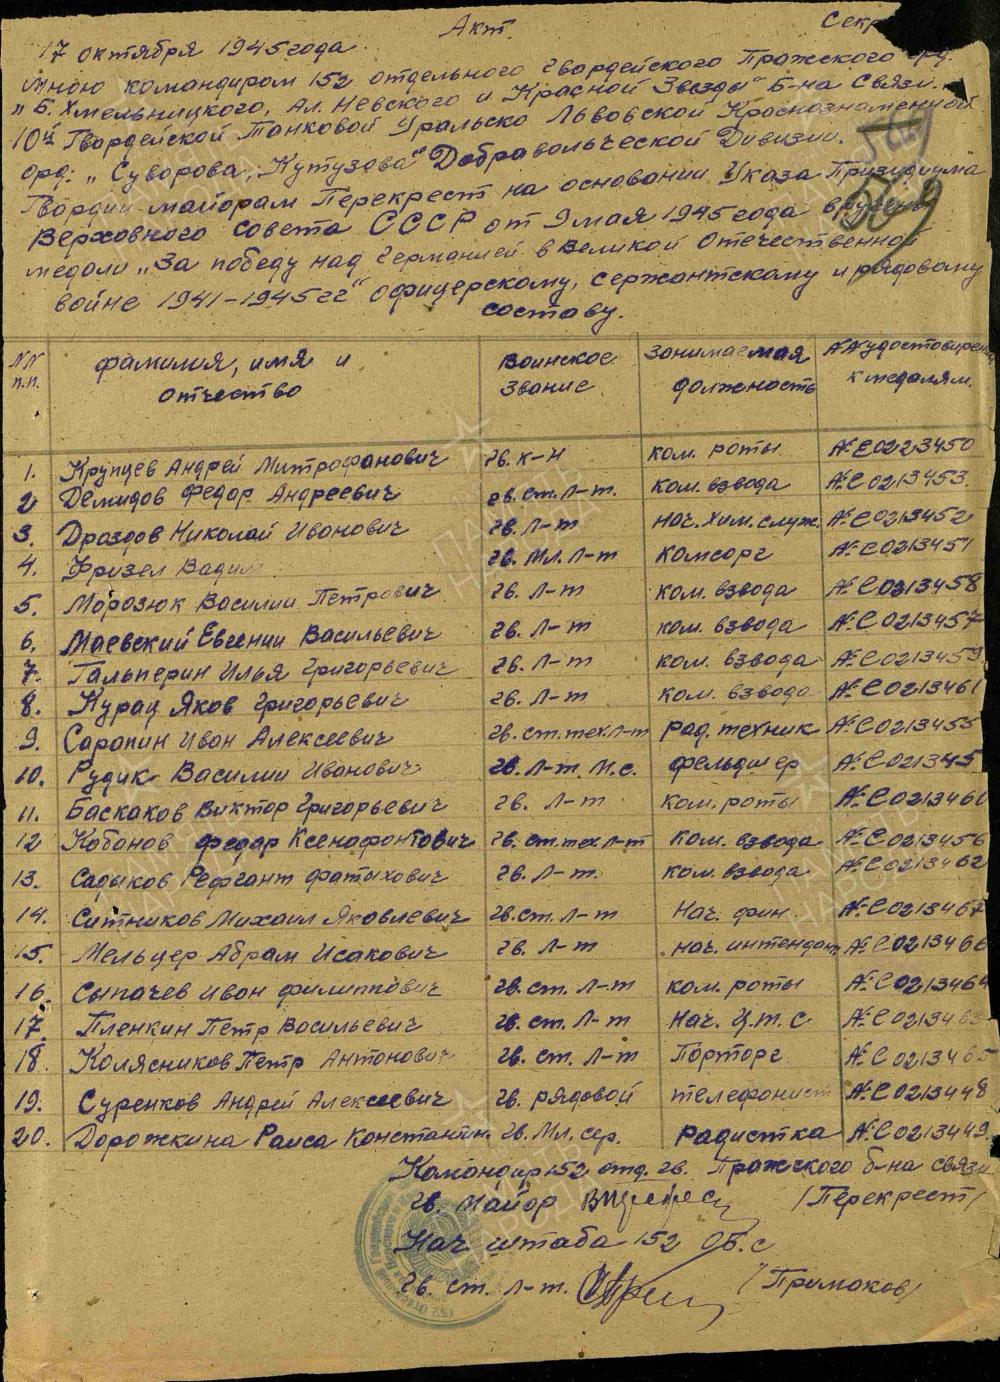 Акт. Секр
17 октября 1945 года.
Мною командиром 152 отдельного гвардейского Пражского орд.
„Б. Хмельницкого, Ал. Невского и Красной Звезды" Б-на Связи.
10й Гвардейской Танковой Уральско Львовской Краснознаменной
орд: „Суворова, Кутузова" Добравольческой Дивизии.
Гвордии майорам Перекрест на основании Указа Призидиума
Верховного Совета СССР от 9 мая 1945 года вручены
медали „За победу над Германией в Великой Отечественной
войне 1941-1945гг" офицерскому, сержантскому и рядовому
составу.
NN п.п. фамилия, имя и отчество Воинское звание Занимаемая должность NN удостоверен. к медалям.
1. Крупцев Андрей Митрофанович гв. к-н ком. роты № E 0223450
2 Демидов Федар Андреевич гв. ст. л-т. ком. взвода № E 0213453.
3. Драздов Николай Иванович гв. л-т нач. хим. служ. № E 0213452
4. Фризел Вадим гв. мл. л-т комсорг № E 0213451
5. Морозюк Василии Петрович гв. л-т ком. взвода № E 0213458
6. Маевский Евгении Васильевич гв. л-т ком. взвода № E 0213457
7. Гальперин Илья Григорьевич гв. л-т ком. взвода № E 0213459.
8. Курац Яков Григорьевич гв. л-т ком. взвода № E 0213461
9. Сарапин Иван Алексеевич гв. ст. тех. л-т рад. техник № E 0213455
10. Рудик Василии Иванович гв. л-т. м.с. фельдшер № E 021345
11. Баскаков Виктор Григорьевич гв. л-т ком. роты № E 0213460
12 Кабанов федар Ксенофонтович гв. ст. тех. л-т ком. взвода № E 0213456
13. Садыков Рефгант фатыхович гв. л-т. ком. взвода № E 0213462
14. Ситников Михаил Яковлевич гв. ст. л-т нач. фин. № E 0213467
15. Мельцер Абрам Исакович гв. л-т нач. интендант № E 0213466
16. Сыпачев Иван филиппович гв. ст. л-т ком. роты № E 0213464
17. Пленкин Петр Васильевич гв. ст. л-т нач. Ц.т.с № E 0213463
18. Колясников Петр Антонович гв. ст. л-т Порторг № E 0213465
19. Суренков Андрей Алексеевич гв. рядовой телефонист № E 0213448
20. Дорожкина Раиса Константин. гв. мл. сер. радистка № E 0213449
Командир 152 отд. гв. Пражского б-на связи
гв. майор /Перекрест/
Нач штаба 152 ОБ.С
гв. ст. л-т. /Примаков/